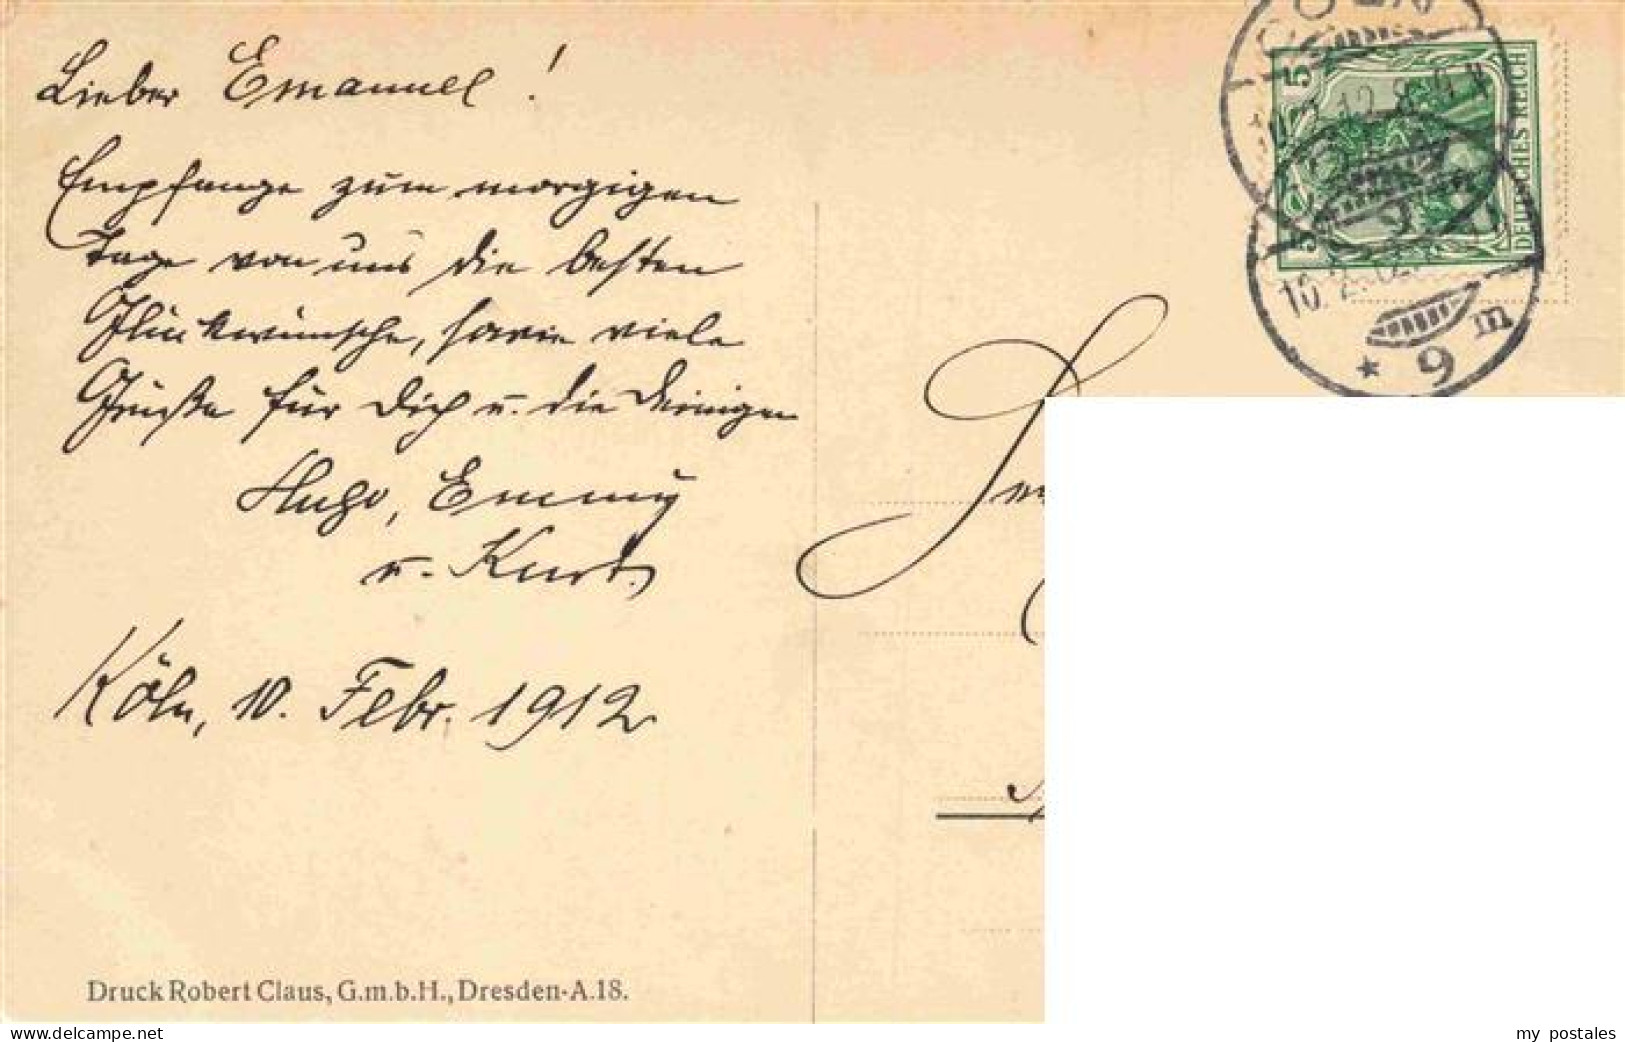 Lieber Emanuel!
Empfange zum morgigen
Tage von uns die besten
Glückwünsche, sowie viele
Grüße für Dich u. die Deinigen
Hugo, Emmy
u. Kurt.
Köln, 10. Febr. 1912
Druck Robert Claus, G.m.b.H., Dresden-A.18.
5 5
DEUTSCHES REICH
* 9 m
my postales